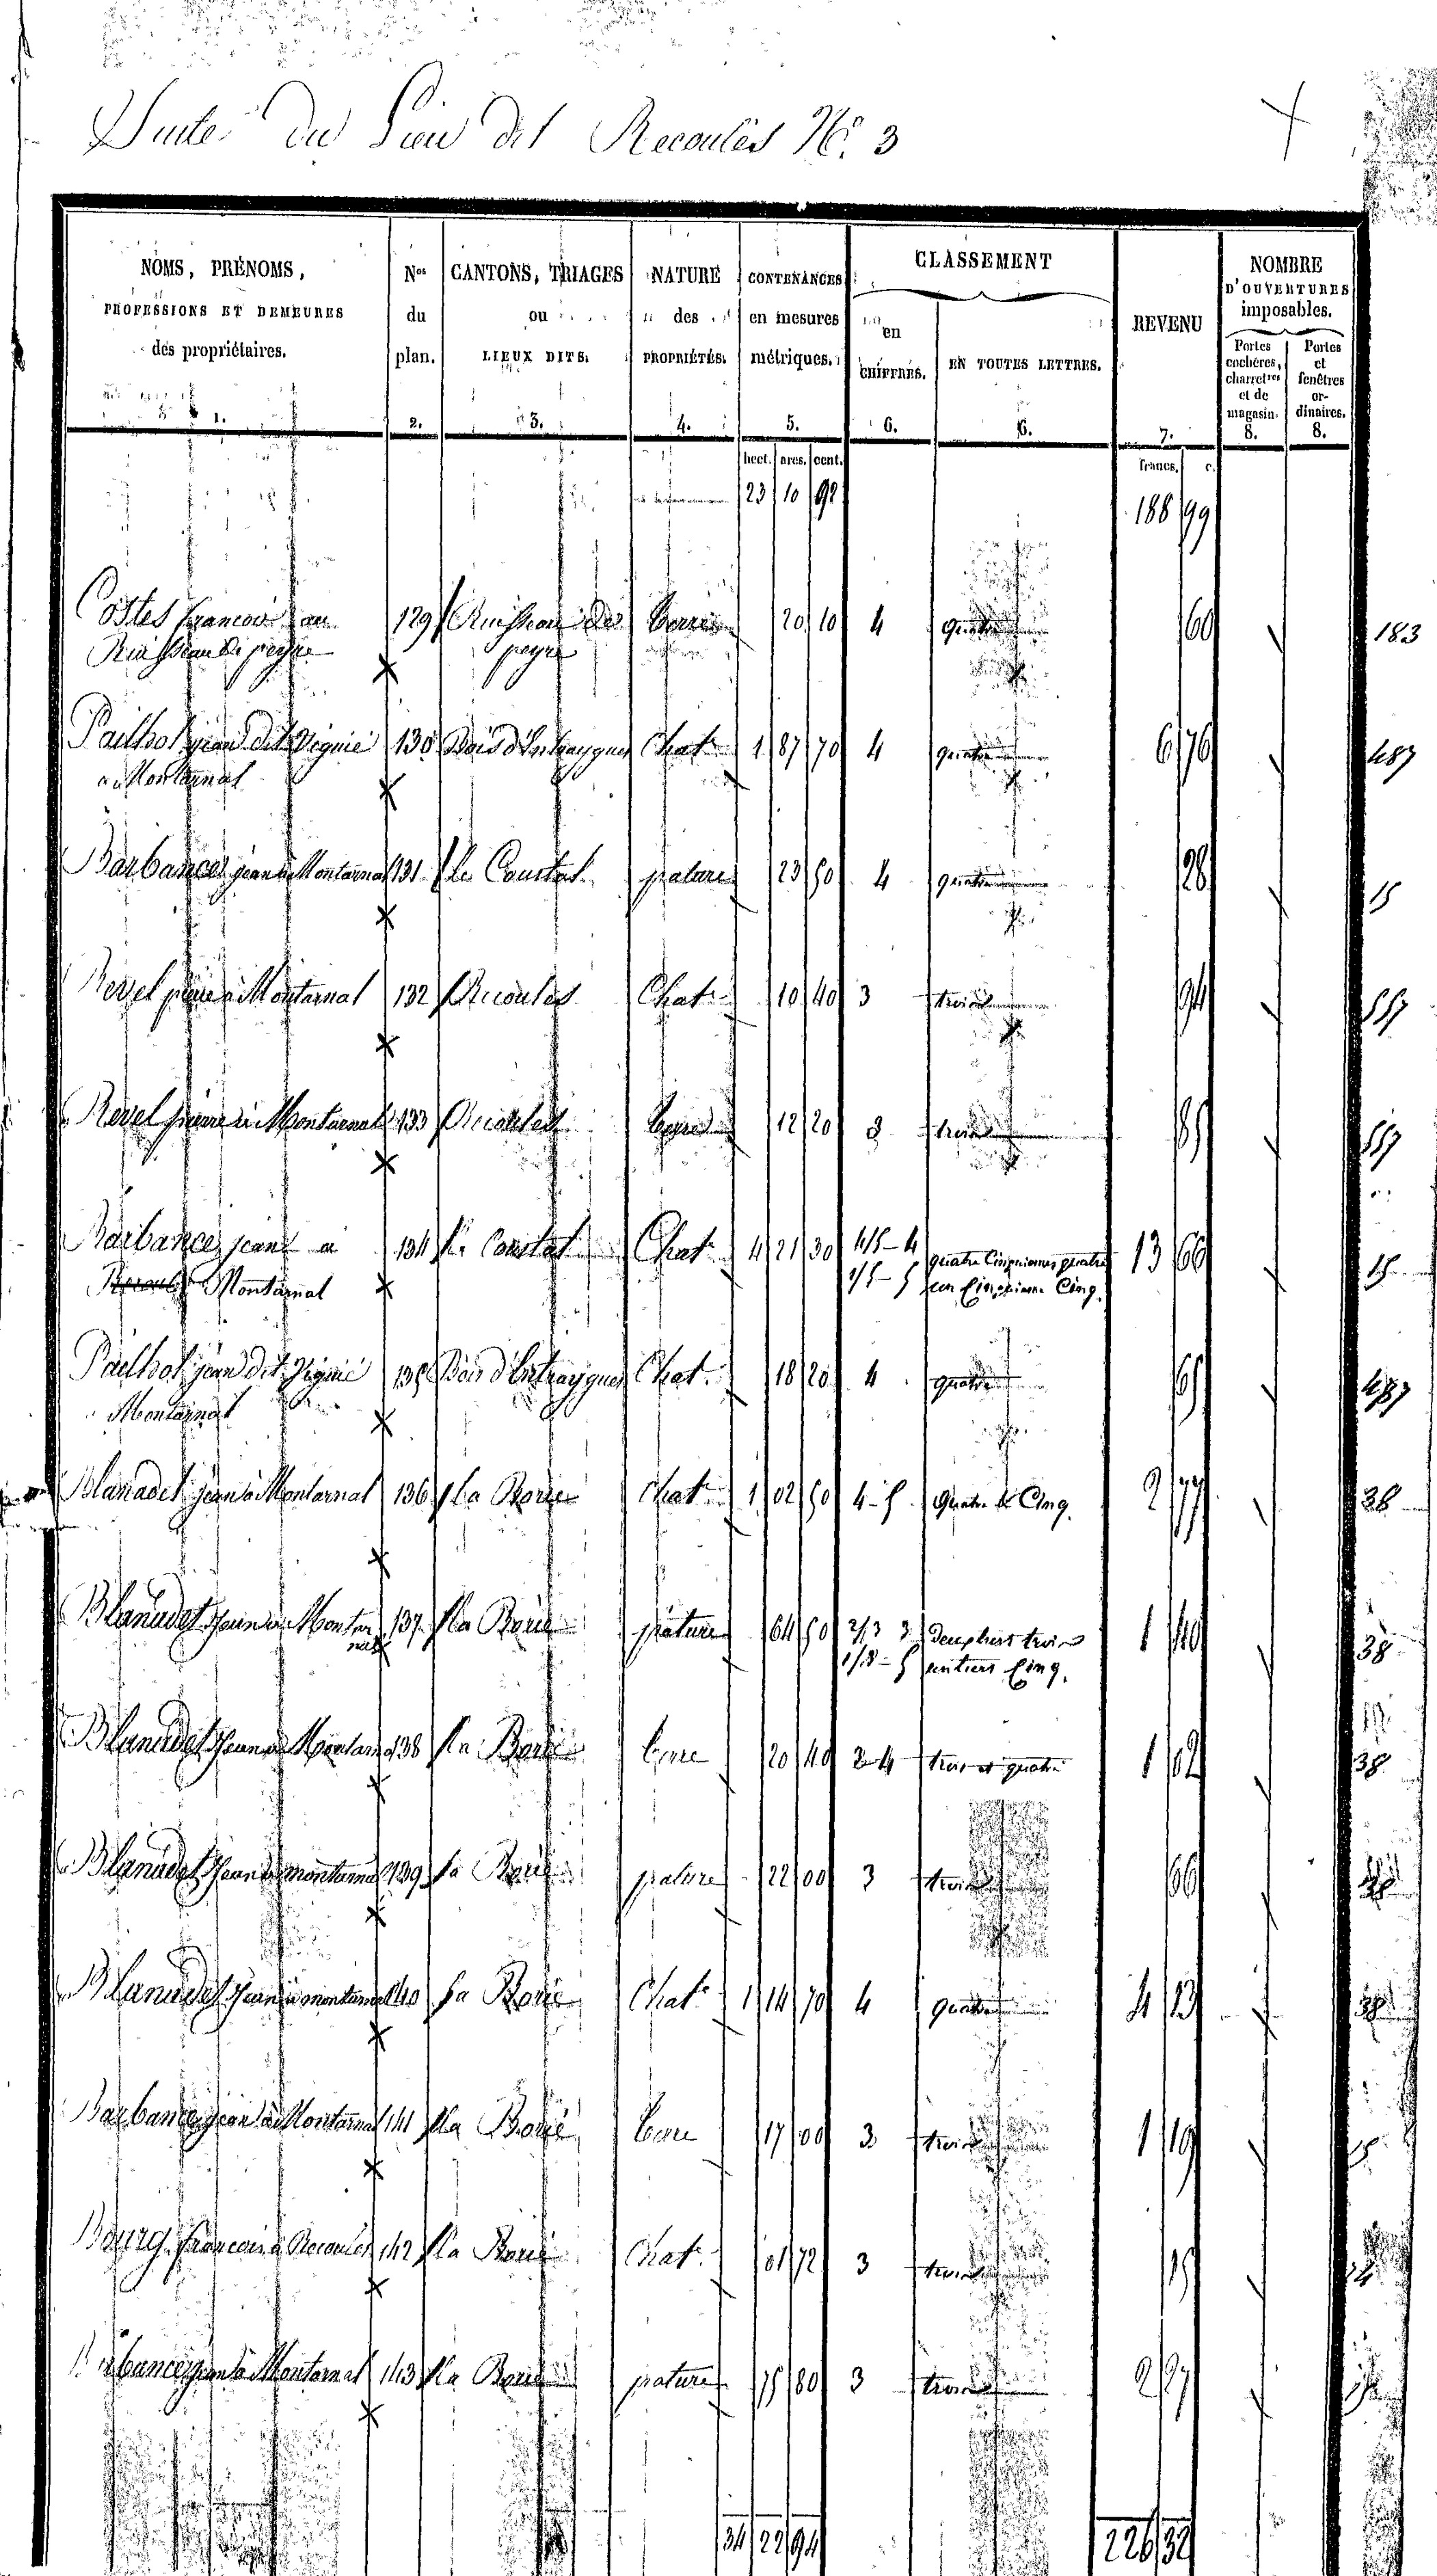 Suite du Lieu dit Recoules N.º 3
NOMS, PRÉNOMS, PROFESSIONS ET DEMEURES des propriétaires. 1.
Nos du plan. 2.
CANTONS, TRIAGES ou LIEUX DITS. 3.
NATURE des PROPRIÉTÉS. 4.
CONTENANCES en mesures métriques. 5.
CLASSEMENT
en CHIFFRES. 6.
EN TOUTES LETTRES. 6.
REVENU 7.
NOMBRE D'OUVERTURES imposables.
Portes cochères, charretres et de magasin. 8.
Portes et fenêtres ordinaires. 8.
hect. ares. cent. francs. c.
23 10 92 188 99
Costes francois au 129 Ruisseau de terre 20 10 4 quatre 60 183
Ruisseau de peyre peyre
Pailhol jean dit Vignie 130 Bois d'Entraygues Chat. 1 87 70 4 quatre 6 76 487
a Montarnal
Barbances jean à Montarnal 131 Le Coustat pature 23 50 4 quatre 28 15
Revel pierre à Montarnal 132 Recoules Chat. 10 40 3 trois 94 557
Revel pierre à Montarnal 133 Recoules terre 12 20 3 trois 85 557
Barbances jean a 134 Le Coustat Chat. 4 21 30 4/5 - 4 quatre Cinquiemes quatre 13 66 15
Montarnal 1/5 - 5 un Cinquieme Cinq.
Pailhol jean dit Vignie 135 Bois d'Entraygues Chat. 18 20 4 quatre 65 487
Montarnal
Blanadet jean à Montarnal 136 La Borie Chat. 1 02 50 4-5 quatre & Cinq. 2 77 38
Blanadet Jean à Montar 137 La Borie pature 64 50 2/3 3 deux tiers trois 1 40 38
nal 1/3 - 5 un tiers Cinq.
Blanadet Jean à Montarnal 138 La Borie terre 20 40 3-4 trois et quatre 1 02 38
Blanadet Jean à montarnal 139 La Borie pature 22 00 3 trois 66 38
Blanadet Jean à montarnal 140 La Borie Chat. 1 14 70 4 quatre 4 13 38
Barbances jean à Montarnal 141 La Borie terre 17 00 3 trois 1 19 15
Bourg francois à Recoules 142 La Borie Chat. 01 72 3 trois 15
Barbances jean à Montarnal 143 La Borie pature 75 80 3 trois 2 27
34 22 94 226 32